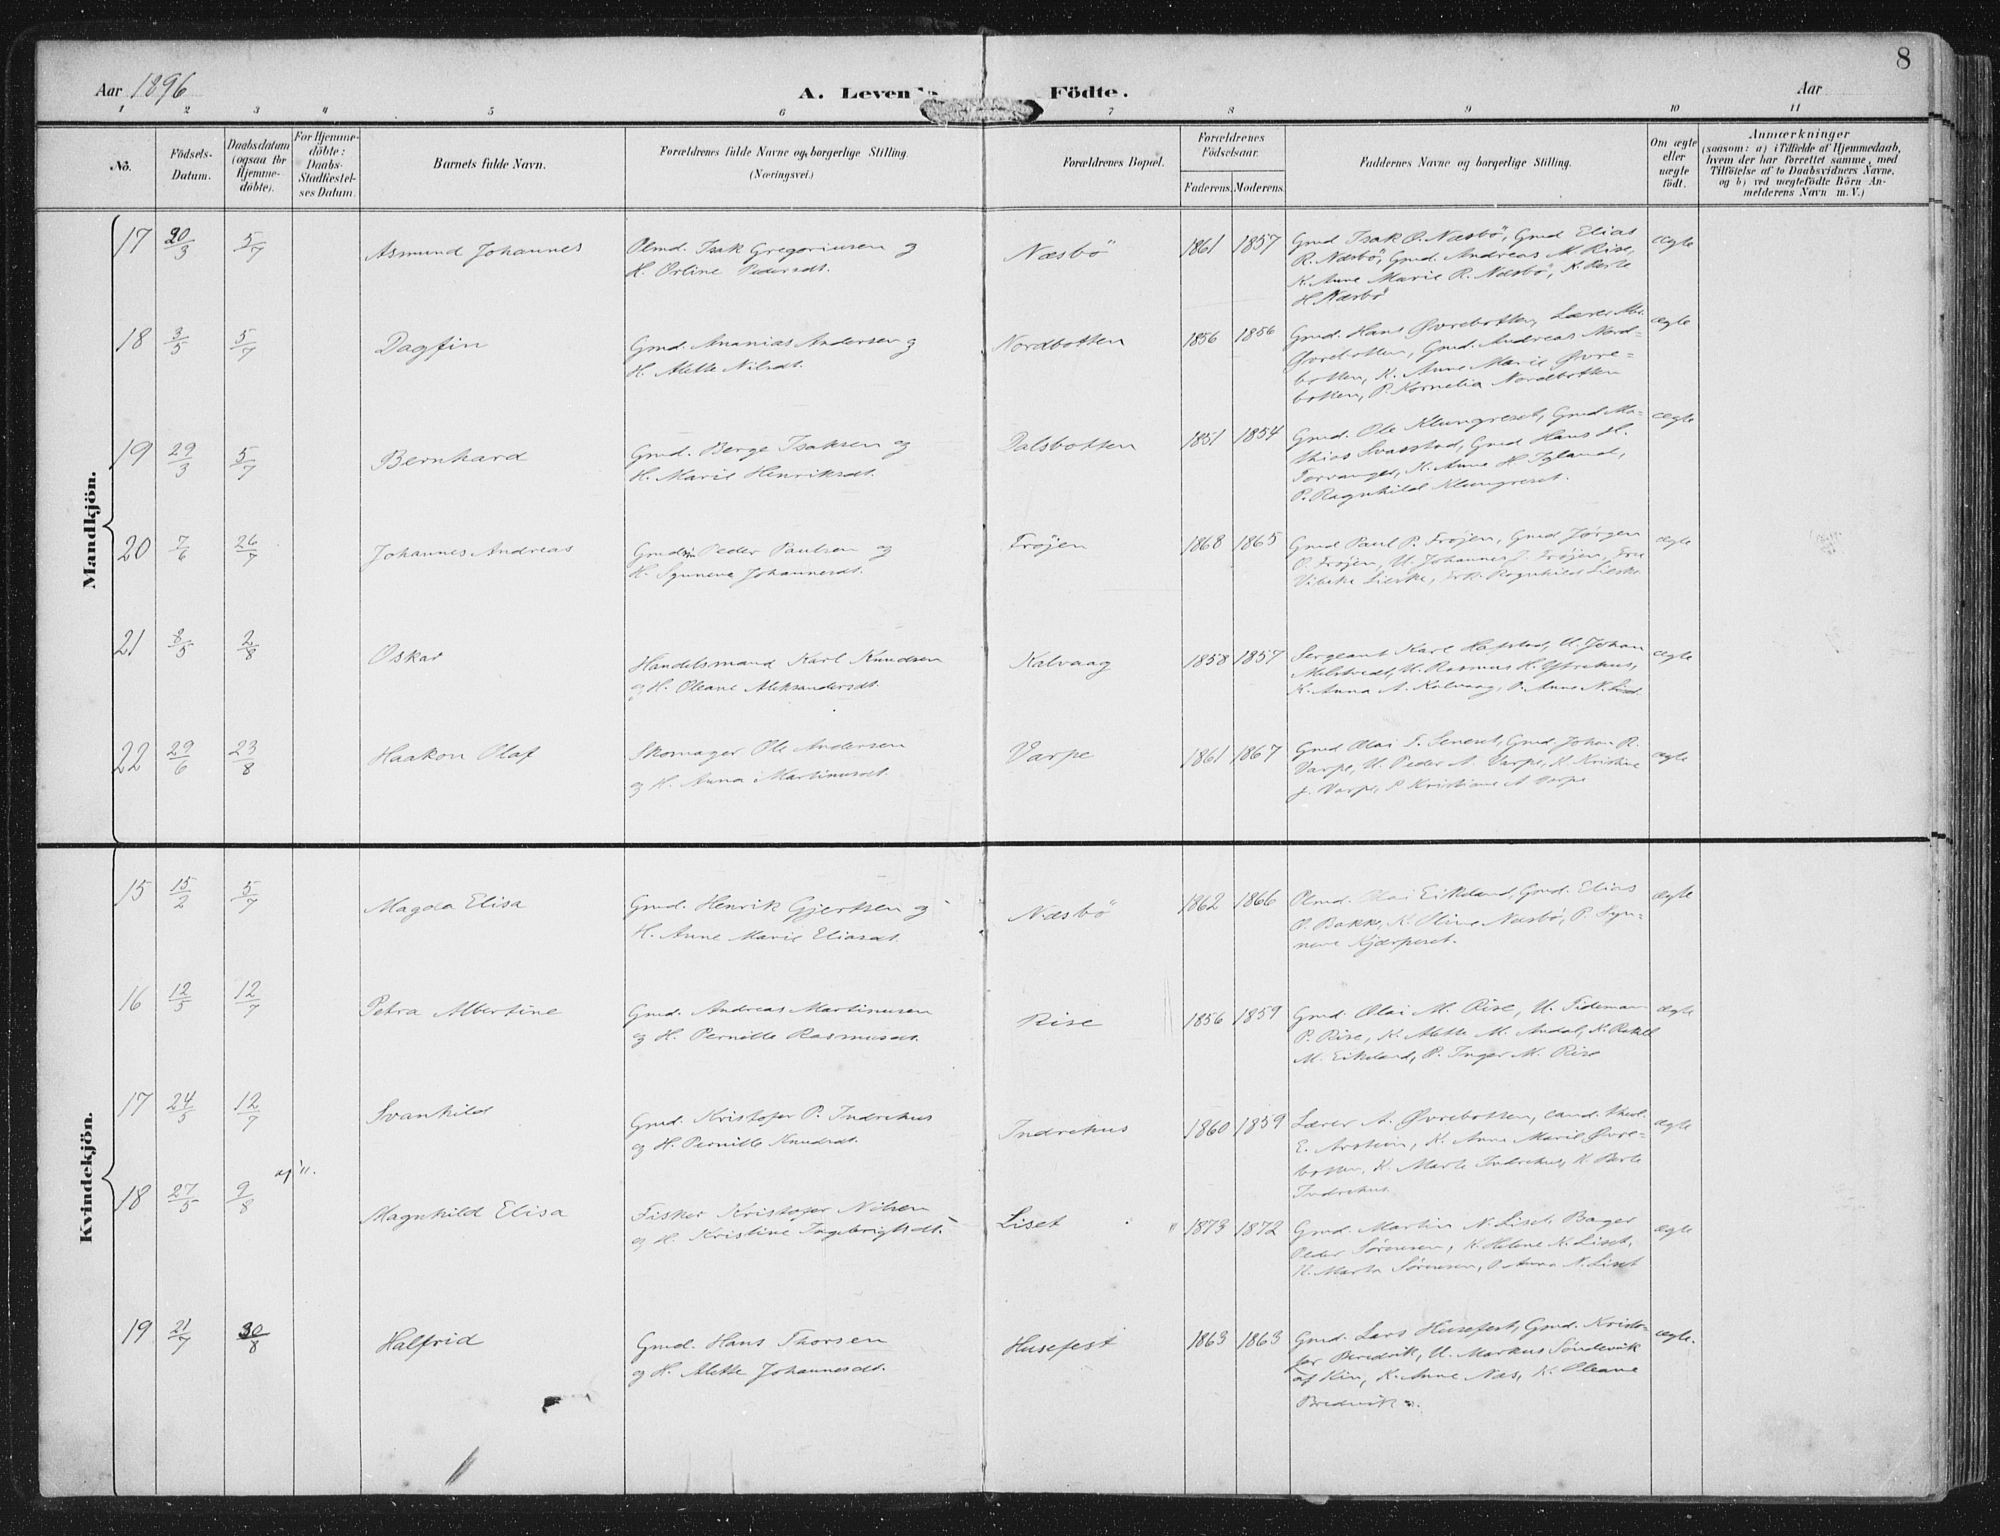 8
Aar 1896 A. Levende Födte. Aar
1 2 3 4 5 6 7 8 9 10 11
No. Födsels-Datum. Daabsdatum (ogsaa for Hjemmedöbte). For Hjemmedöbte: Daabs-Stadfæstelses Datum. Barnets fulde Navn. Forældrenes fulde Navne og borgerlige Stilling. (Næringsvei.) Forældrenes Bopæl. Forældrenes Födselsaar. Faderens. Moderens. Faddernes Navne og borgerlige Stilling. Om ægte eller uægte födt. Anmærkninger
(saasom: a) i Tilfælde af Hjemmedaab,
hvem der har forrettet samme, med
Tilföielse af to Daabsvidners Navne,
og b) ved uægtefödte Börn Anmelderens Navn m. V.)
Mandkjön.
17 20/3 5/7 Asmund Johannes Olmd. Isak Gregoriusen og Næsbö 1861 1857 Gmd Isak O. Næsbö, Gmd Elias ægte
H. Orline Pedersdt. R. Næsbö, Gmd. Andreas M. Rise,
K. Anne Marie R. Næsbö, K. Berte
H Næsbö
18 3/5 5/7 Dagfin Gmd. Ananias Andersen og Nordbotten 1856 1856 Gmd. Hans Øvrebotten, Lærer ægte
H. Alette Nilsdt. Øvrebotten, Gmd. Andreas Nord-
botten, K. Anne Marie Øvre-
botten, P. Kornelia Nordbotten
19 29/3 5/7 Bernhard Gmd. Berge Isaksen og Dalsbotten 1851 1854 Gmd. Ole Klungreset, Gmd Ma- ægte
H. Marie Henriksdt. thias Svarstad, Gmd Hans H.
Torvanger, K. Anne H Igland,
P. Ragnhild Klungreset.
20 7/6 26/7 Johannes Andreas Gmdsøn Peder Paulsen og Frøjen 1868 1865 Gmd Paul P. Frøjen, Gmd Jørgen ægte
H. Synneva Johannesdt. O. Frøjen, U. Johannes J. Frøjen,
21 8/5 2/8 Oskar Handelsmand Karl Knudsen Kalvaag 1858 1857 Sergeant Karl Hafstad, U. Johan ægte
og H. Oleane Aleksandersdt. U. Rasmus H. Ytrehus,
K. Anna A. Kalvaag, P. Anne N. Liset
22 29/6 23/8 Haakon Olaf Skomager Ole Andersen Varpe 1861 1867 Gmd Olai T. Seneset, Gmd Johan R. ægte
og H. Anna Martinusdt. Varpe, U. Peder A. Varpe, K Kristine
J. Varpe, P Kristiane A Varpe
Kvindekjön.
15 15/2 5/7 Magda Elisa Gmd. Henrik Gjertsen og Næsbö 1862 1866 Olmd. Olai Eikeland, Gmd. Elias ægte
H. Anne Marie Eliasdt. O. Bakke, K. Oline Næsbö, P. Syn-
neve Kjærpeset.
16 12/5 12/7 Petra Albertine Gmd. Andreas Martinusen Rise 1856 1859 Gmd. Olai M. Rise, U. Tideman ægte
og H. Pernille Rasmusdt. P. Rise, K. Alette M. Andal, K. Rakel
M. Eikeland, P. Inger M. Rise
17 24/5 12/7 Svanhild Gmd. Kristofer P. Indrehus Indrehus 1860 1859 Lærer A. Øvrebotten, cand. theol. ægte
og H. Pernille Knudsdt. K. Anne Marie Øvre-
botten, K. Marte Indrehus, K Berte
Indrehus
18 27/5 9/8 Magnhild Elisa Fisker Kristofer Nilsen Liset 1873 1872 Gmd. Martin N. Liset, Bager ægte
og H Kristine Ingebrigtsdt. Peder Sørensen, K. Helene N. Liset,
K. Marta Sørensen, P Anna N. Liset
19 21/7 30/8 Halfrid Gmd. Hans Thorsen Husefest 1863 1863 Gmd. Lars Husefest, Gmd. Kristo- ægte.
og H. Alette Johannesdt. fer Bredvik, U. Markus Søndevik
af Kin, K. Anne Næs, K. Oleane
Bredvik.